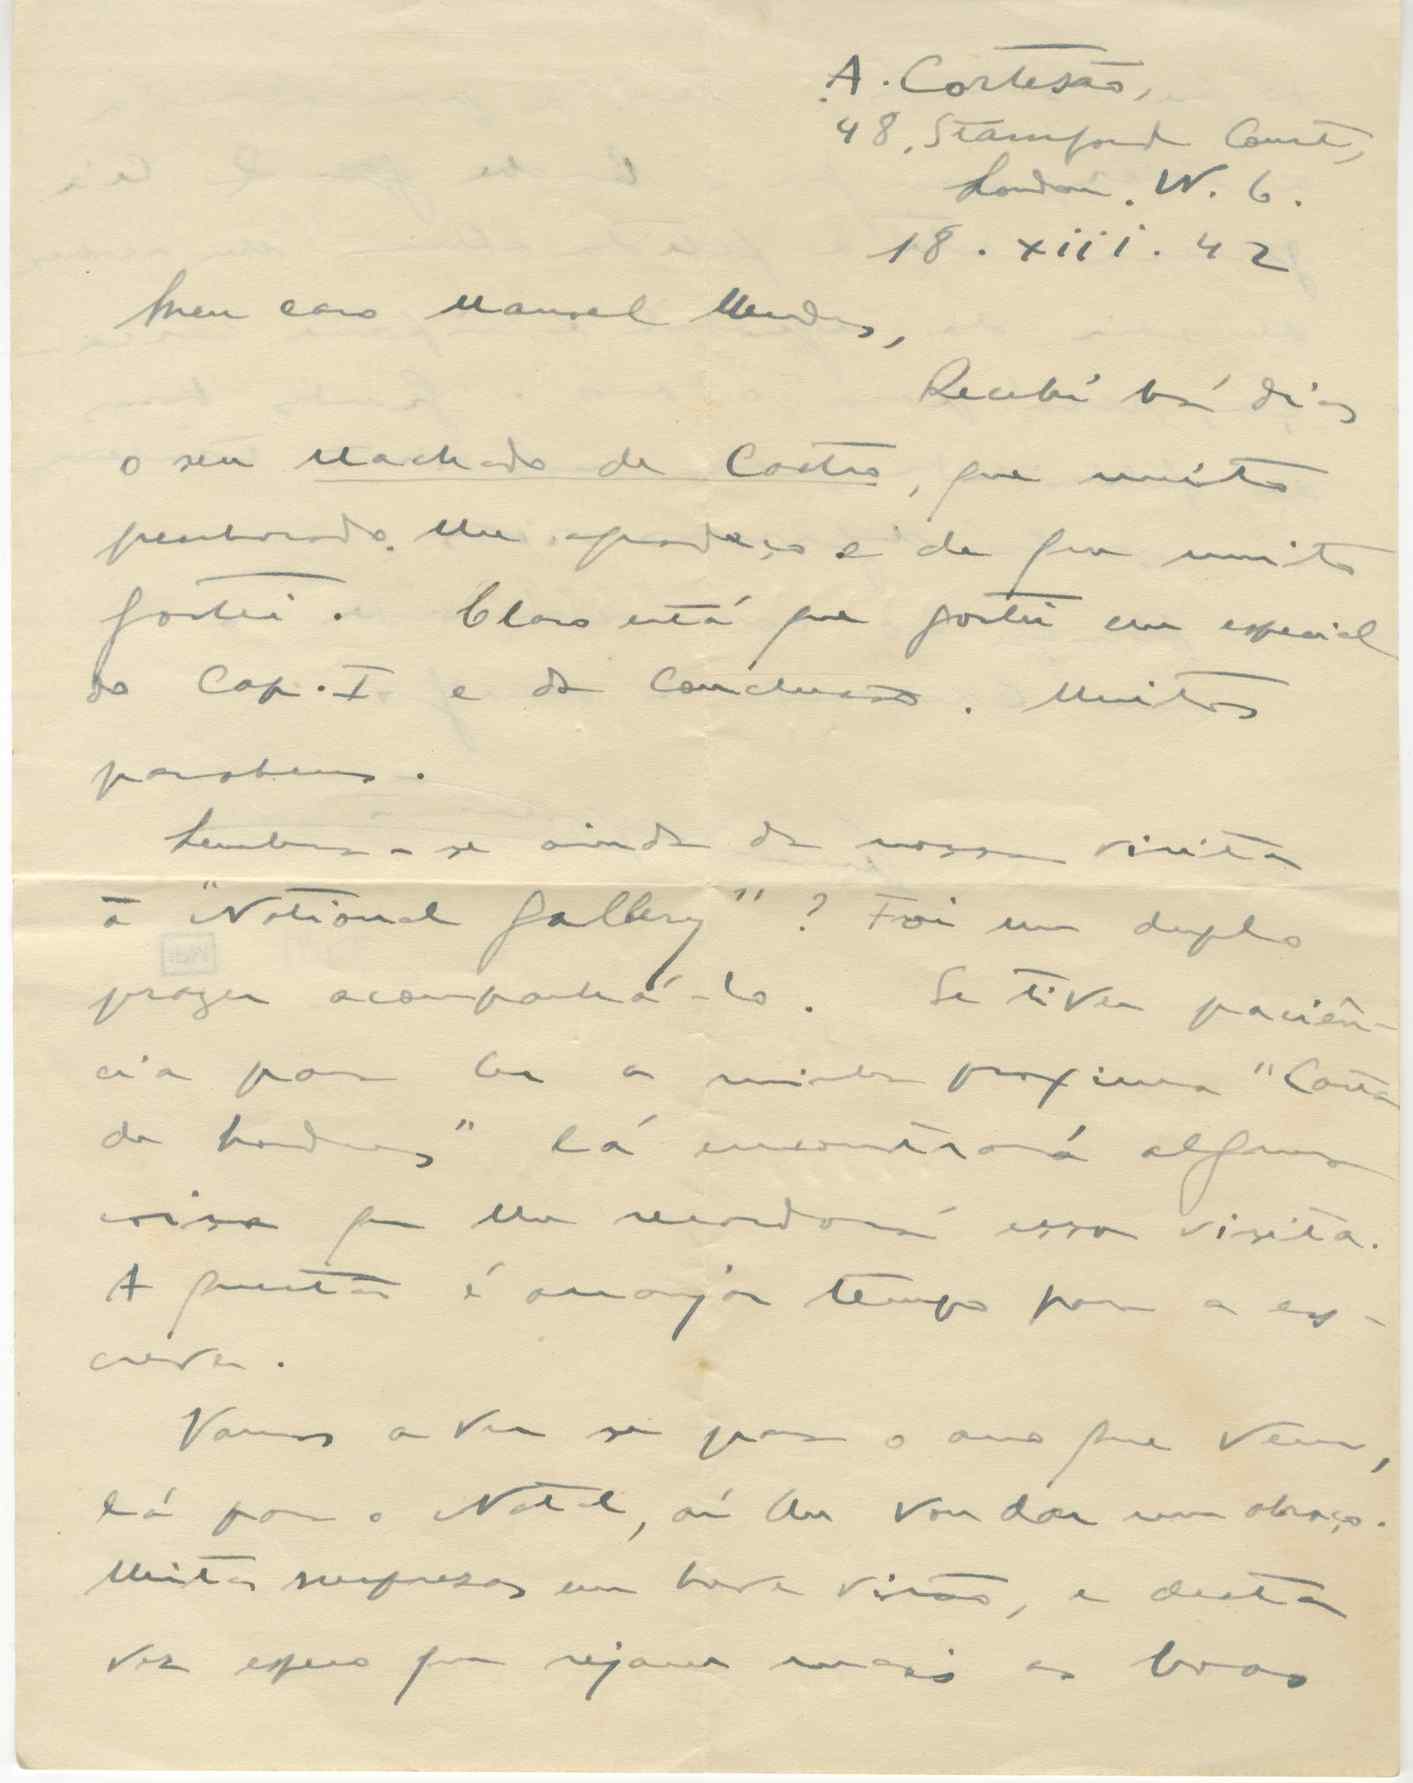 A. Cortesão,
48, Stamford Court,
London. W. 6.
18. xiii. 42
Meu caro Manuel Mendes,
Recebi há dias
o seu Machado de Castro, que muito
penhorado lhe agradeço e de que muito
gostei. Claro está que gostei em especial
do Cap. I e da Conclusão. Muitos
parabens.
Lembra-se ainda da nossa visita
à "National Gallery"? Foi um duplo
prazer acompanhá-lo. Se tiver paciên-
cia para ler a minha proxima "Carta
de Londres" lá encontrará alguma
coisa que lhe recordará essa visita.
A questão é arranjar tempo para a es-
crever.
Vamos a ver se para o ano que vem,
lá para o Natal, aí lhe vou dar um abraço.
Muitas surpresas em breve virão, e desta
vez espero que sejam mais as boas